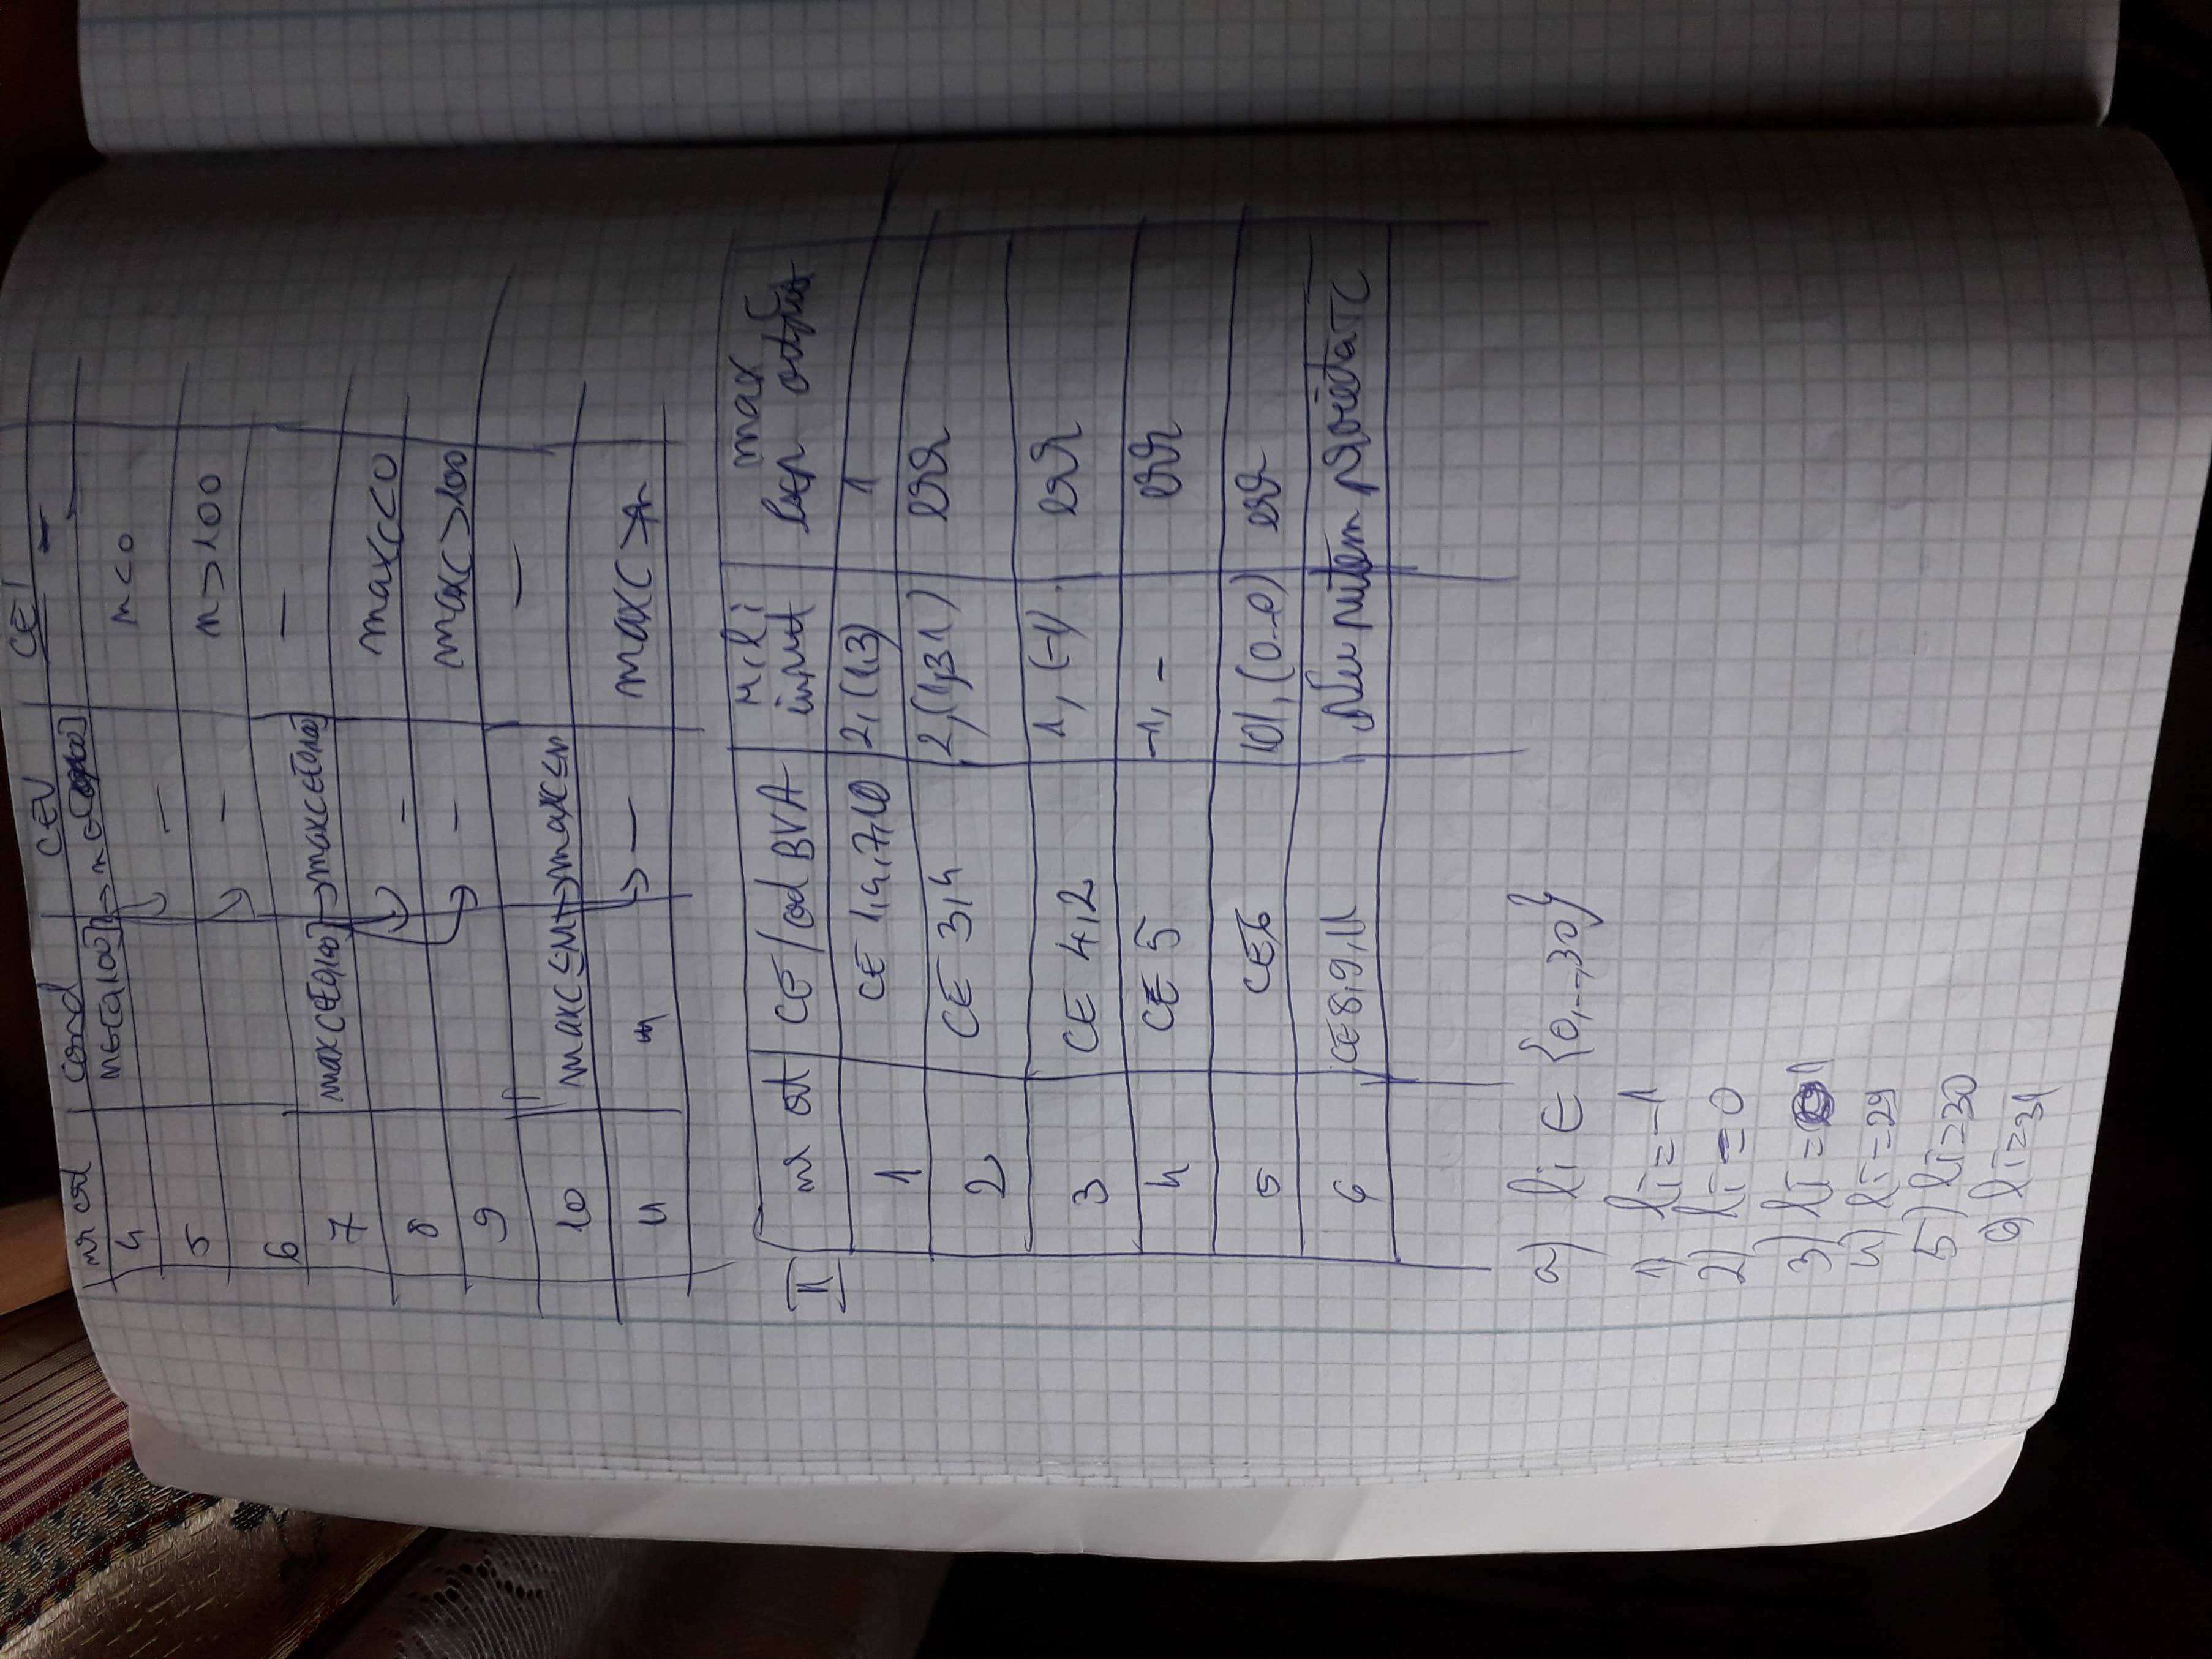 nr crt cond CEV CEI
4 n∈[0,100] → n∈[0,100] -
5 - n<0
6 - n>100
7 maxC∈[0,100] → maxC∈[0,100] -
8 - maxC<0
9 - maxC>100
10 maxC≤n → maxC≤n -
11 " - maxC>n
II nr crt CE/cod BVA n, li input max output
1 CE 1,4,7,10 2,(1,3) 1
2 CE 3,4 2,(1,31) err
3 CE 4,2 1,(-1) err
4 CE 5 -1, - err
5 CE6 101,(0..0) err
6 CE8,9,11 Nu putem proiecta TC
a) li ∈ {0,...,30}
1) li=-1
2) li=0
3) li=1
4) li=29
5) li=30
6) li=31